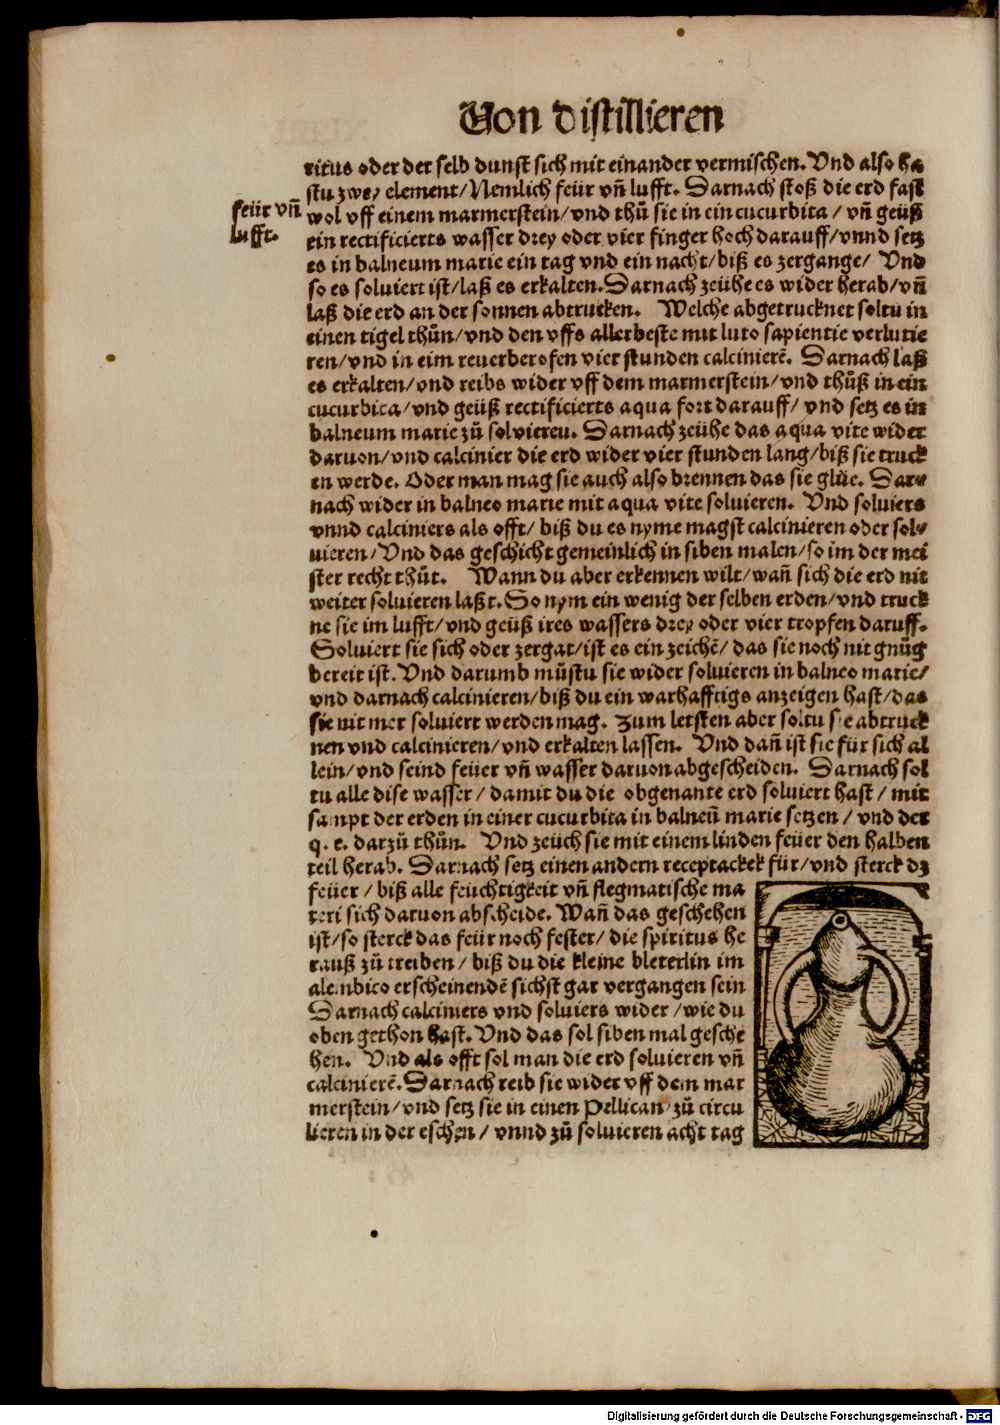 Von distillieren
ritus oder der selb dunst sich mit einander vermischen. Vnd also ha
stu zwey element/ Nemlich feür vñ lufft. Darnach stoß die erd fast
feür vñ
lufft.
wol vff einem marmerstein/ vnd thů sie in ein cucurbita / vñ geüß
ein rectificierts wasser drey oder vier finger hoch darauff/ vnnd setz
es in balneum marie ein tag vnd ein nacht/ biß es zergange/ Vnd
so es soluiert ist/ laß es erkalten. Darnach zeühe es wider herab/ vñ
laß die erd an der sonnen abtrucken. Welche abgetrucknet soltu in
einen tigel thůn/ vnd den vffs allerbeste mit luto sapientie verlutie
ren/ vnd in eim reuerberofen vier stunden calcinierē. Darnach laß
es erkalten/ vnd reibs wider vff dem marmerstein/ vnd thůß in ein
cucurbita/ vnd geüß rectificierts aqua fort darauff/ vnd setz es in
balneum marie zů solvieren. Darnach zeühe das aqua vite wider
daruon/ vnd calcinier die erd wider vier stunden lang/ biß sie truck
en werde. Oder man mag sie auch also brennen das sie glüe. Dar⸗
nach wider in balneo marie mit aqua vite soluieren. Vnd soluiers
vnnd calciniers als offt/ biß du es nyme magst calcinieren oder sol⸗
uieren/ Vnd das geschicht gemeinlich in siben malen/ so im der mei
ster recht thůt. Wann du aber erkennen wilt/ wañ sich die erd nit
weiter soluieren laßt. So nym ein wenig der selben erden/ vnd truck
ne sie im lufft/ vnd geüß ires wassers drey oder vier tropfen daruff.
Soluiert sie sich oder zergat/ ist es ein zeichē/ das sie noch nit gnůg
bereit ist. Vnd darumb můstu sie wider soluieren in balneo marie/
vnd darnach calcinieren/ biß du ein warhafftigs anzeigen hast/ das
sie nit mer soluiert werden mag. Zum letsten aber soltu sie abtruck
nen vnd calcinieren/ vnd erkalten lassen. Vnd dañ ist sie für sich al
lein/ vnd seind feüer vñ wasser daruon abgescheiden. Darnach sol
tu alle dise wasser/ damit du die obgenante erd soluiert hast/ mit
sampt der erden in einer cucurbita in balneū marie setzen/ vnd der
q. e. darzů thůn. Vnd zeüch sie mit einem linden feüer den halben
teil herab. Darnach setz einen andern receptackel für/ vnd sterck dz
feüer/ biß alle feuchtigkeit vñ flegmatische ma
teri sich daruon abscheide. Wañ das geschehen
ist/ so sterck das feür noch fester/ die spiritus he
rauß zů treiben/ biß du die kleine bleterlin im
alembico erscheinendē sichst gar vergangen sein
Darnach calciniers vnd soluiers wider/ wie du
oben gethon hast. Vnd das sol siben mal gesche
hen. Vnd als offt sol man die erd soluieren vñ
calcinierē. Darnach reib sie wider vff dem mar
merstein/ vnd setz sie in einen Pellican/ zů circu
lieren in der eschen/ vnnd zů soluieren acht tag
Digitalisierung gefördert durch die Deutsche Forschungsgemeinschaft - DFG